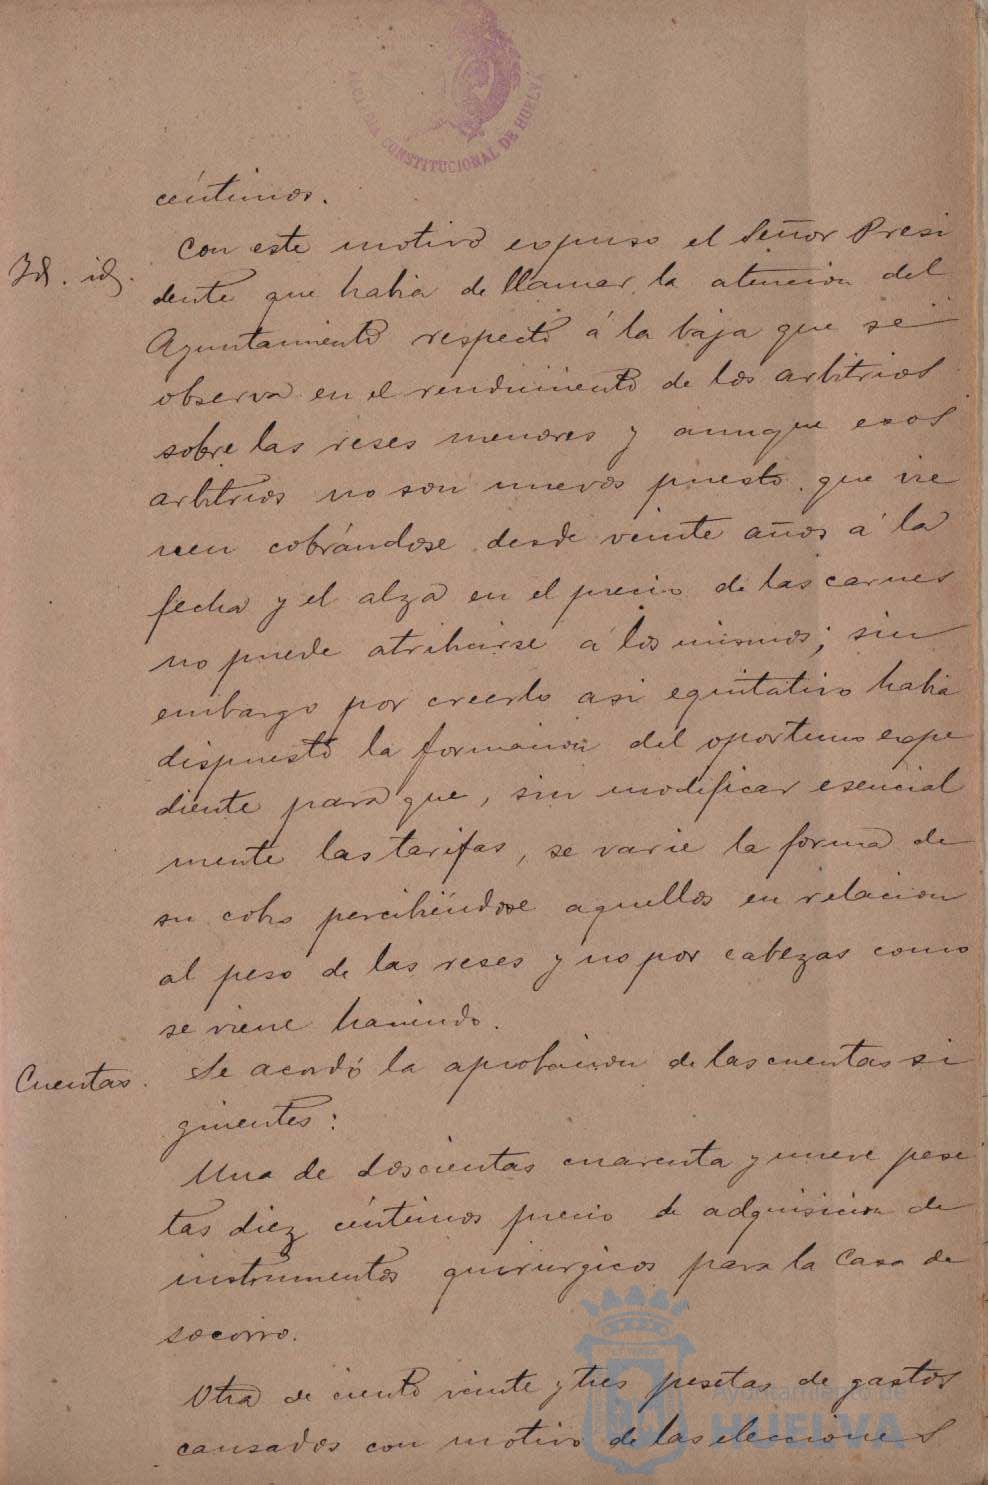 ALCALDIA CONSTITUCIONAL DE HUELVA
céntimos.
Con este motivo expuso el Señor Presi
Id. id.
dente que habia de llamar la atencion del
Ayuntamiento respecto á la baja que se
observa en el rendimiento de los arbitrios
sobre las reses menores y aunque esos
arbitrios no son nuevos puesto que vie
nen cobrándose desde veinte años á la
fecha y el alza en el precio de las carnes
no puede atribuirse á los mismos; sin
embargo por creerlo asi equitativo habia
dispuesto la formacion del oportuno expe
diente para que, sin modificar esencial
mente las tarifas, se varie la forma de
su cobro percibiéndose aquellos en relacion
al peso de las reses y no por cabezas como
se viene haciendo.
Cuentas.
Se acordó la aprobacion de las cuentas si
guientes:
Una de doscientas cuarenta y nueve pese
tas diez céntimos precio de adquisicion de
instrumentos quirurgicos para la Casa de
socorro.
Otra de ciento veinte y tres pesetas de gastos
causados con motivo de las elecciones
Ayuntamiento de
HUELVA